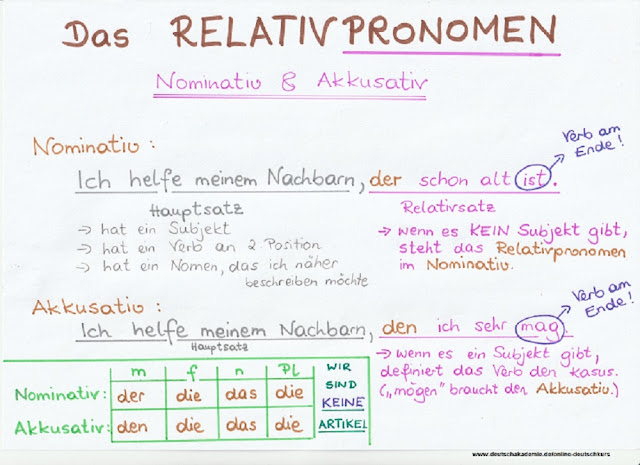 Das RELATIVPRONOMEN
Nominativ & Akkusativ
Nominativ:
Verb am Ende!
Ich helfe meinem Nachbarn, der schon alt ist.
Hauptsatz
→ hat ein Subjekt
→ hat ein Verb an 2 Position
→ hat ein Nomen, das ich näher
beschreiben möchte
Relativsatz
→ wenn es KEIN Subjekt gibt,
steht das Relativpronomen
im Nominativ.
Akkusativ:
Verb am
Ende!
Ich helfe meinem Nachbarn, den ich sehr mag.
Hauptsatz
→ wenn es ein Subjekt gibt,
definiert das Verb den Kasus.
(„mögen" braucht den Akkusativ.)
m f n Pl
Nominativ: der die das die
Akkusativ: den die das die
WIR
SIND
KEINE
ARTIKEL
www.deutschakademie.de/online-deutschkurs